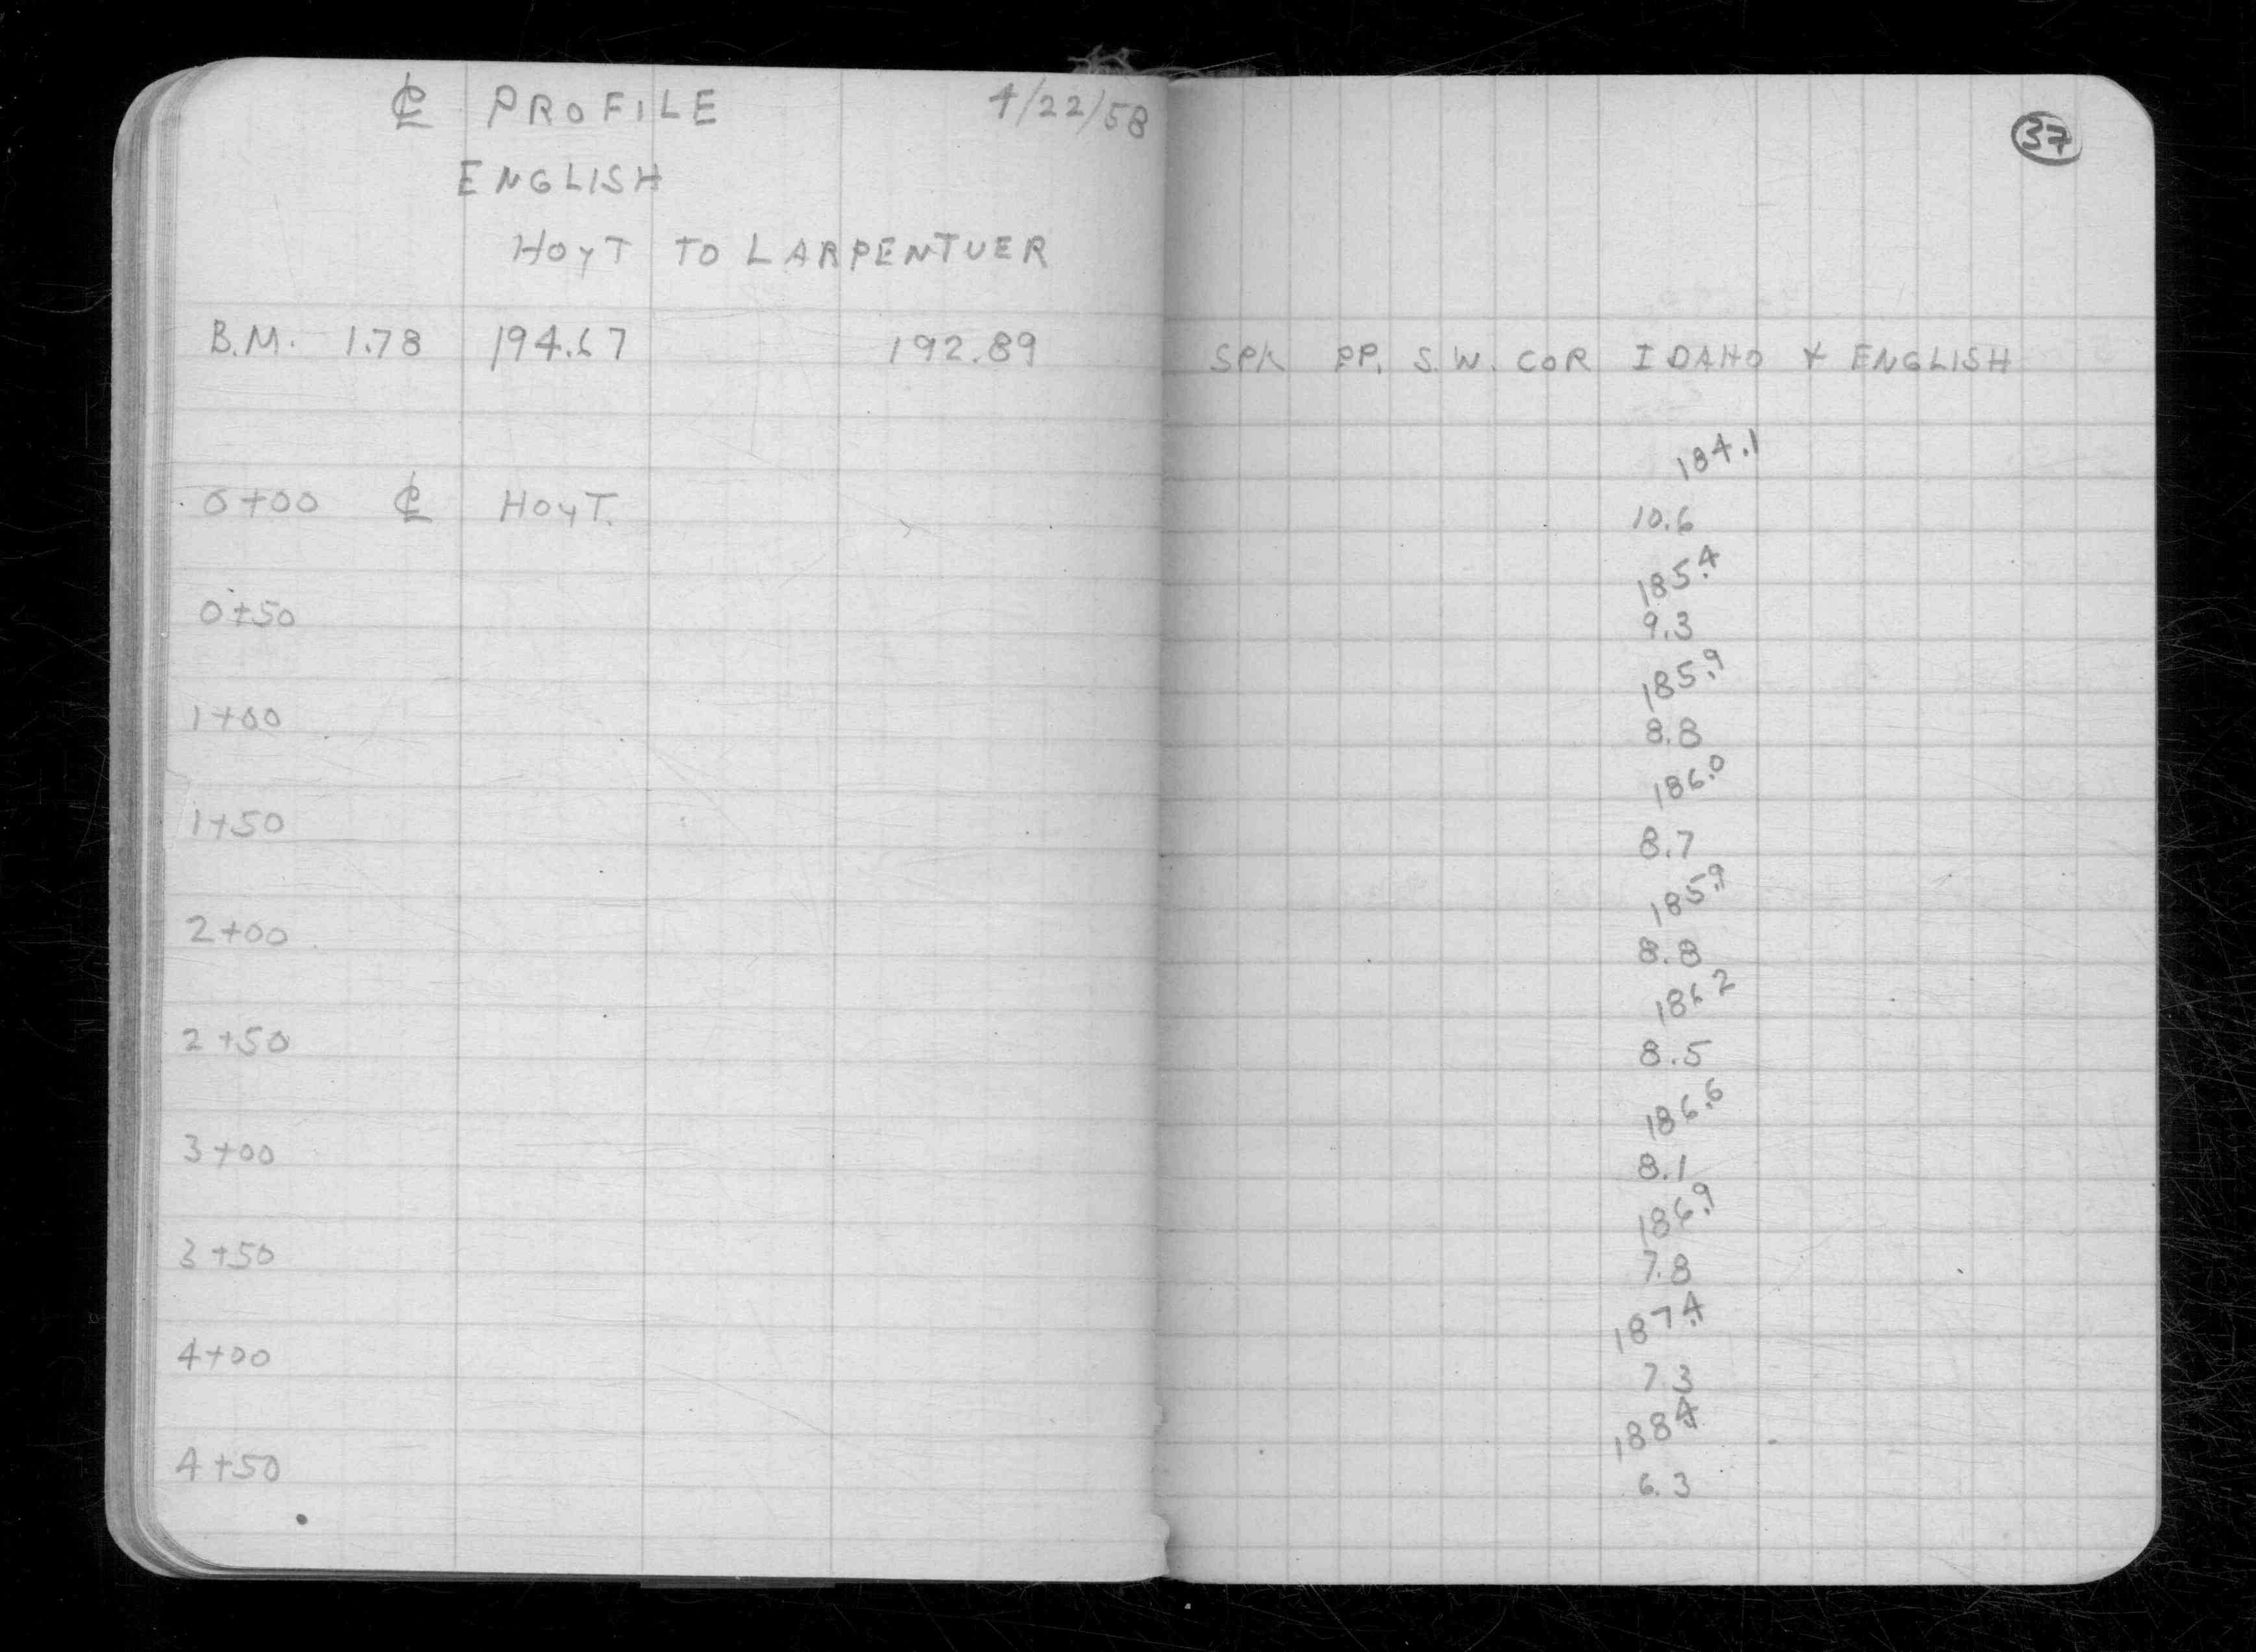 ℄ PROFILE 4/22/58
ENGLISH
HOYT TO LARPENTUER
B.M. 1.78 194.67 192.89
0+00 ℄ HOYT.
0+50
1+00
1+50
2+00
2+50
3+00
3+50
4+00
4+50
37
SPK PP. S.W. COR IDAHO & ENGLISH
184.1
10.6
185.4
9.3
185.9
8.8
186.0
8.7
185.9
8.8
186.2
8.5
186.6
8.1
186.9
7.8
187.4
7.3
188.4
6.3